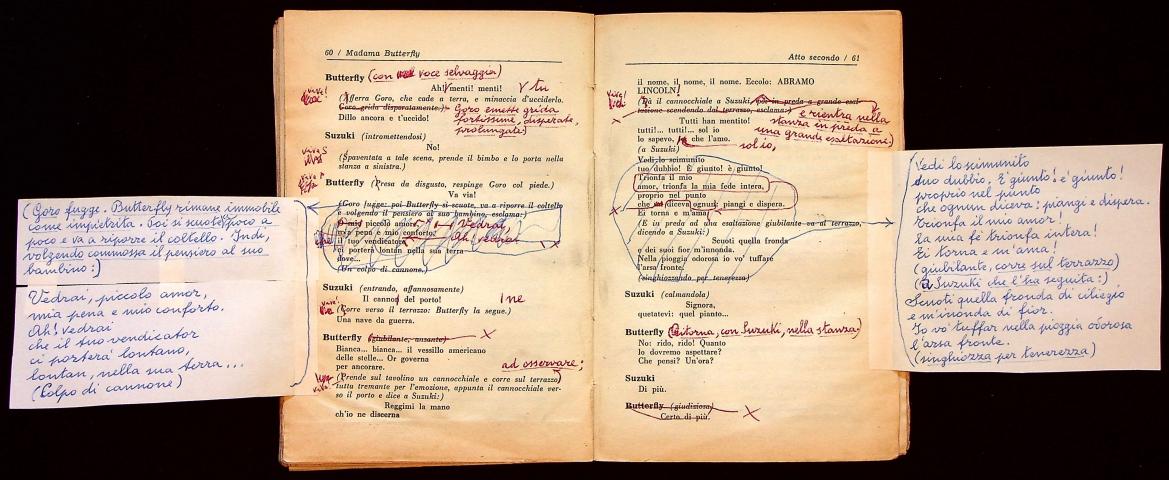 60 / Madama Butterfly
Butterfly (con voce selvaggia)
Ah! menti! menti! tu
(Afferra Goro, che cade a terra, e minaccia d'ucciderlo.
Goro grida disperatamente.) Goro emette grida
fortissime, disperate,
prolungate)
Dillo ancora e t'uccido!
Suzuki (intromettendosi)
No!
(Spaventata a tale scena, prende il bimbo e lo porta nella
stanza a sinistra.)
Butterfly (Presa da disgusto, respinge Goro col piede.)
Va via!
(Goro fugge: poi Butterfly si scuote, va a riporre il coltello
e volgendo il pensiero al suo bambino, esclama:)
piccolo amor, Vedrai,
mia pena e mio conforto, Ah! vedrai
il tuo vendicator
ci porterà lontan nella sua terra
dove...
(Un colpo di cannone.)
Suzuki (entrando, affannosamente)
Il cannon del porto! ne
(Corre verso il terrazzo: Butterfly la segue.)
Una nave da guerra.
Butterfly (giubilante, ansante) X
Bianca... bianca... il vessillo americano
delle stelle... Or governa
per ancorare. ad osservare;
(Prende sul tavolino un cannocchiale e corre sul terrazzo
tutta tremante per l'emozione, appunta il cannocchiale ver-
so il porto e dice a Suzuki:)
Reggimi la mano
ch'io ne discerna
(Goro fugge. Butterfly rimane immobile
come impietrita. Poi si scuote poco a
poco e va a riporre il coltello. Indi,
volgendo commossa il pensiero al suo
bambino:)
Vedrai, piccolo amor,
mia pena e mio conforto.
Ah! Vedrai
che il tuo vendicator
ci porterà lontano,
lontan, nella sua terra...
(Colpo di cannone)
Atto secondo / 61
il nome, il nome, il nome. Eccolo: ABRAMO
LINCOLN!
(Dà il cannocchiale a Suzuki, poi in preda a grande esal-
tazione scendendo dal terrazzo, esclama:) e rientra nella
stanza in preda a
una grande esaltazione.)
Tutti han mentito!
tutti!... tutti!... sol io
lo sapevo, che l'amo. sol io,
(a Suzuki)
Vedi lo scimunito
tuo dubbio! È giunto! è giunto!
Trionfa il mio
amor, trionfa la mia fede intera,
proprio nel punto
che diceva ognun: piangi e dispera.
Ei torna e m'ama!
(E in preda ad una esaltazione giubilante va al terrazzo,
dicendo a Suzuki:)
Scuoti quella fronda
e dei suoi fior m'innonda.
Nella pioggia odorosa io vo' tuffare
l'arsa fronte!
(singhiozzando per tenerezza)
Suzuki (calmandola)
Signora,
quetatevi: quel pianto...
Butterfly (Ritorna, con Suzuki, nella stanza)
No: rido, rido! Quanto
lo dovremo aspettare?
Che pensi? Un'ora?
Suzuki
Di più.
Butterfly (giudiziosa) X
Certo di più.
Vedi lo scimunito
tuo dubbio. È giunto! è giunto!
proprio nel punto
che ognun diceva: piangi e dispera.
Trionfa il mio amor!
la mia fè trionfa intera!
Ei torna e m'ama!
(giubilante, corre sul terrazzo)
(a Suzuki che l'ha seguita:)
Scuoti quella fronda di ciliegio
e m'inonda di fior.
Io vo' tuffar nella pioggia odorosa
l'arsa fronte.
(singhiozza per tenerezza)